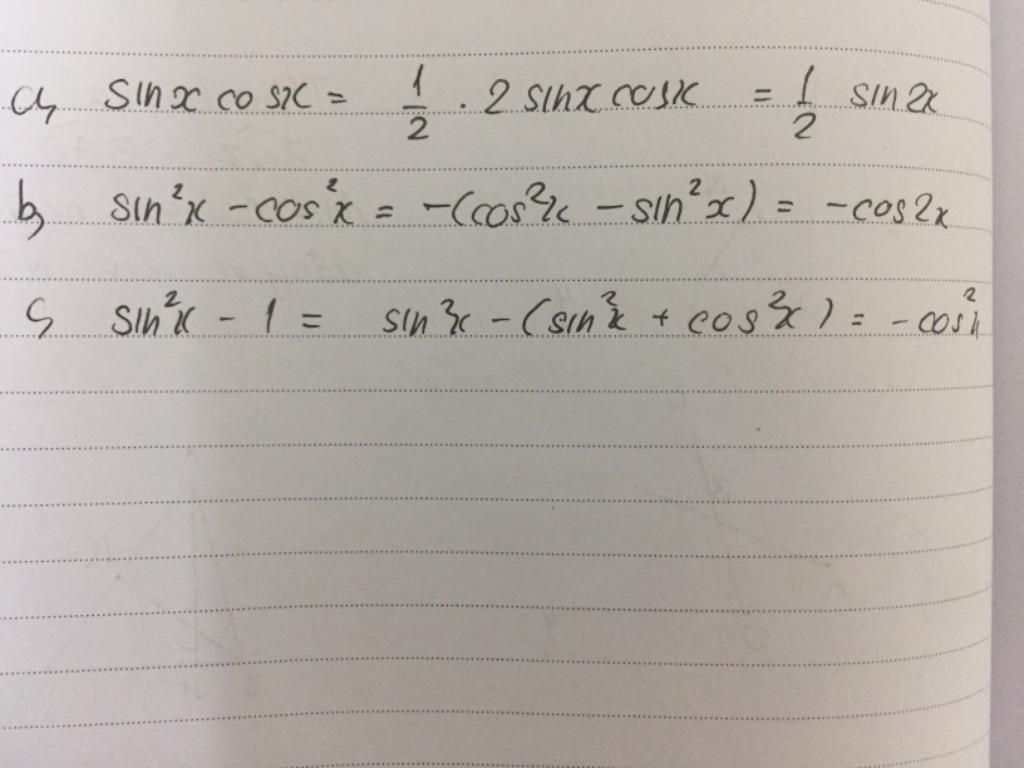 a, sinx cosx = 1/2 · 2 sinx cosx = 1/2 sin2x
b, sin²x - cos²x = -(cos²x - sin²x) = -cos2x
c, sin²x - 1 = sin²x - (sin²x + cos²x) = -cos²x